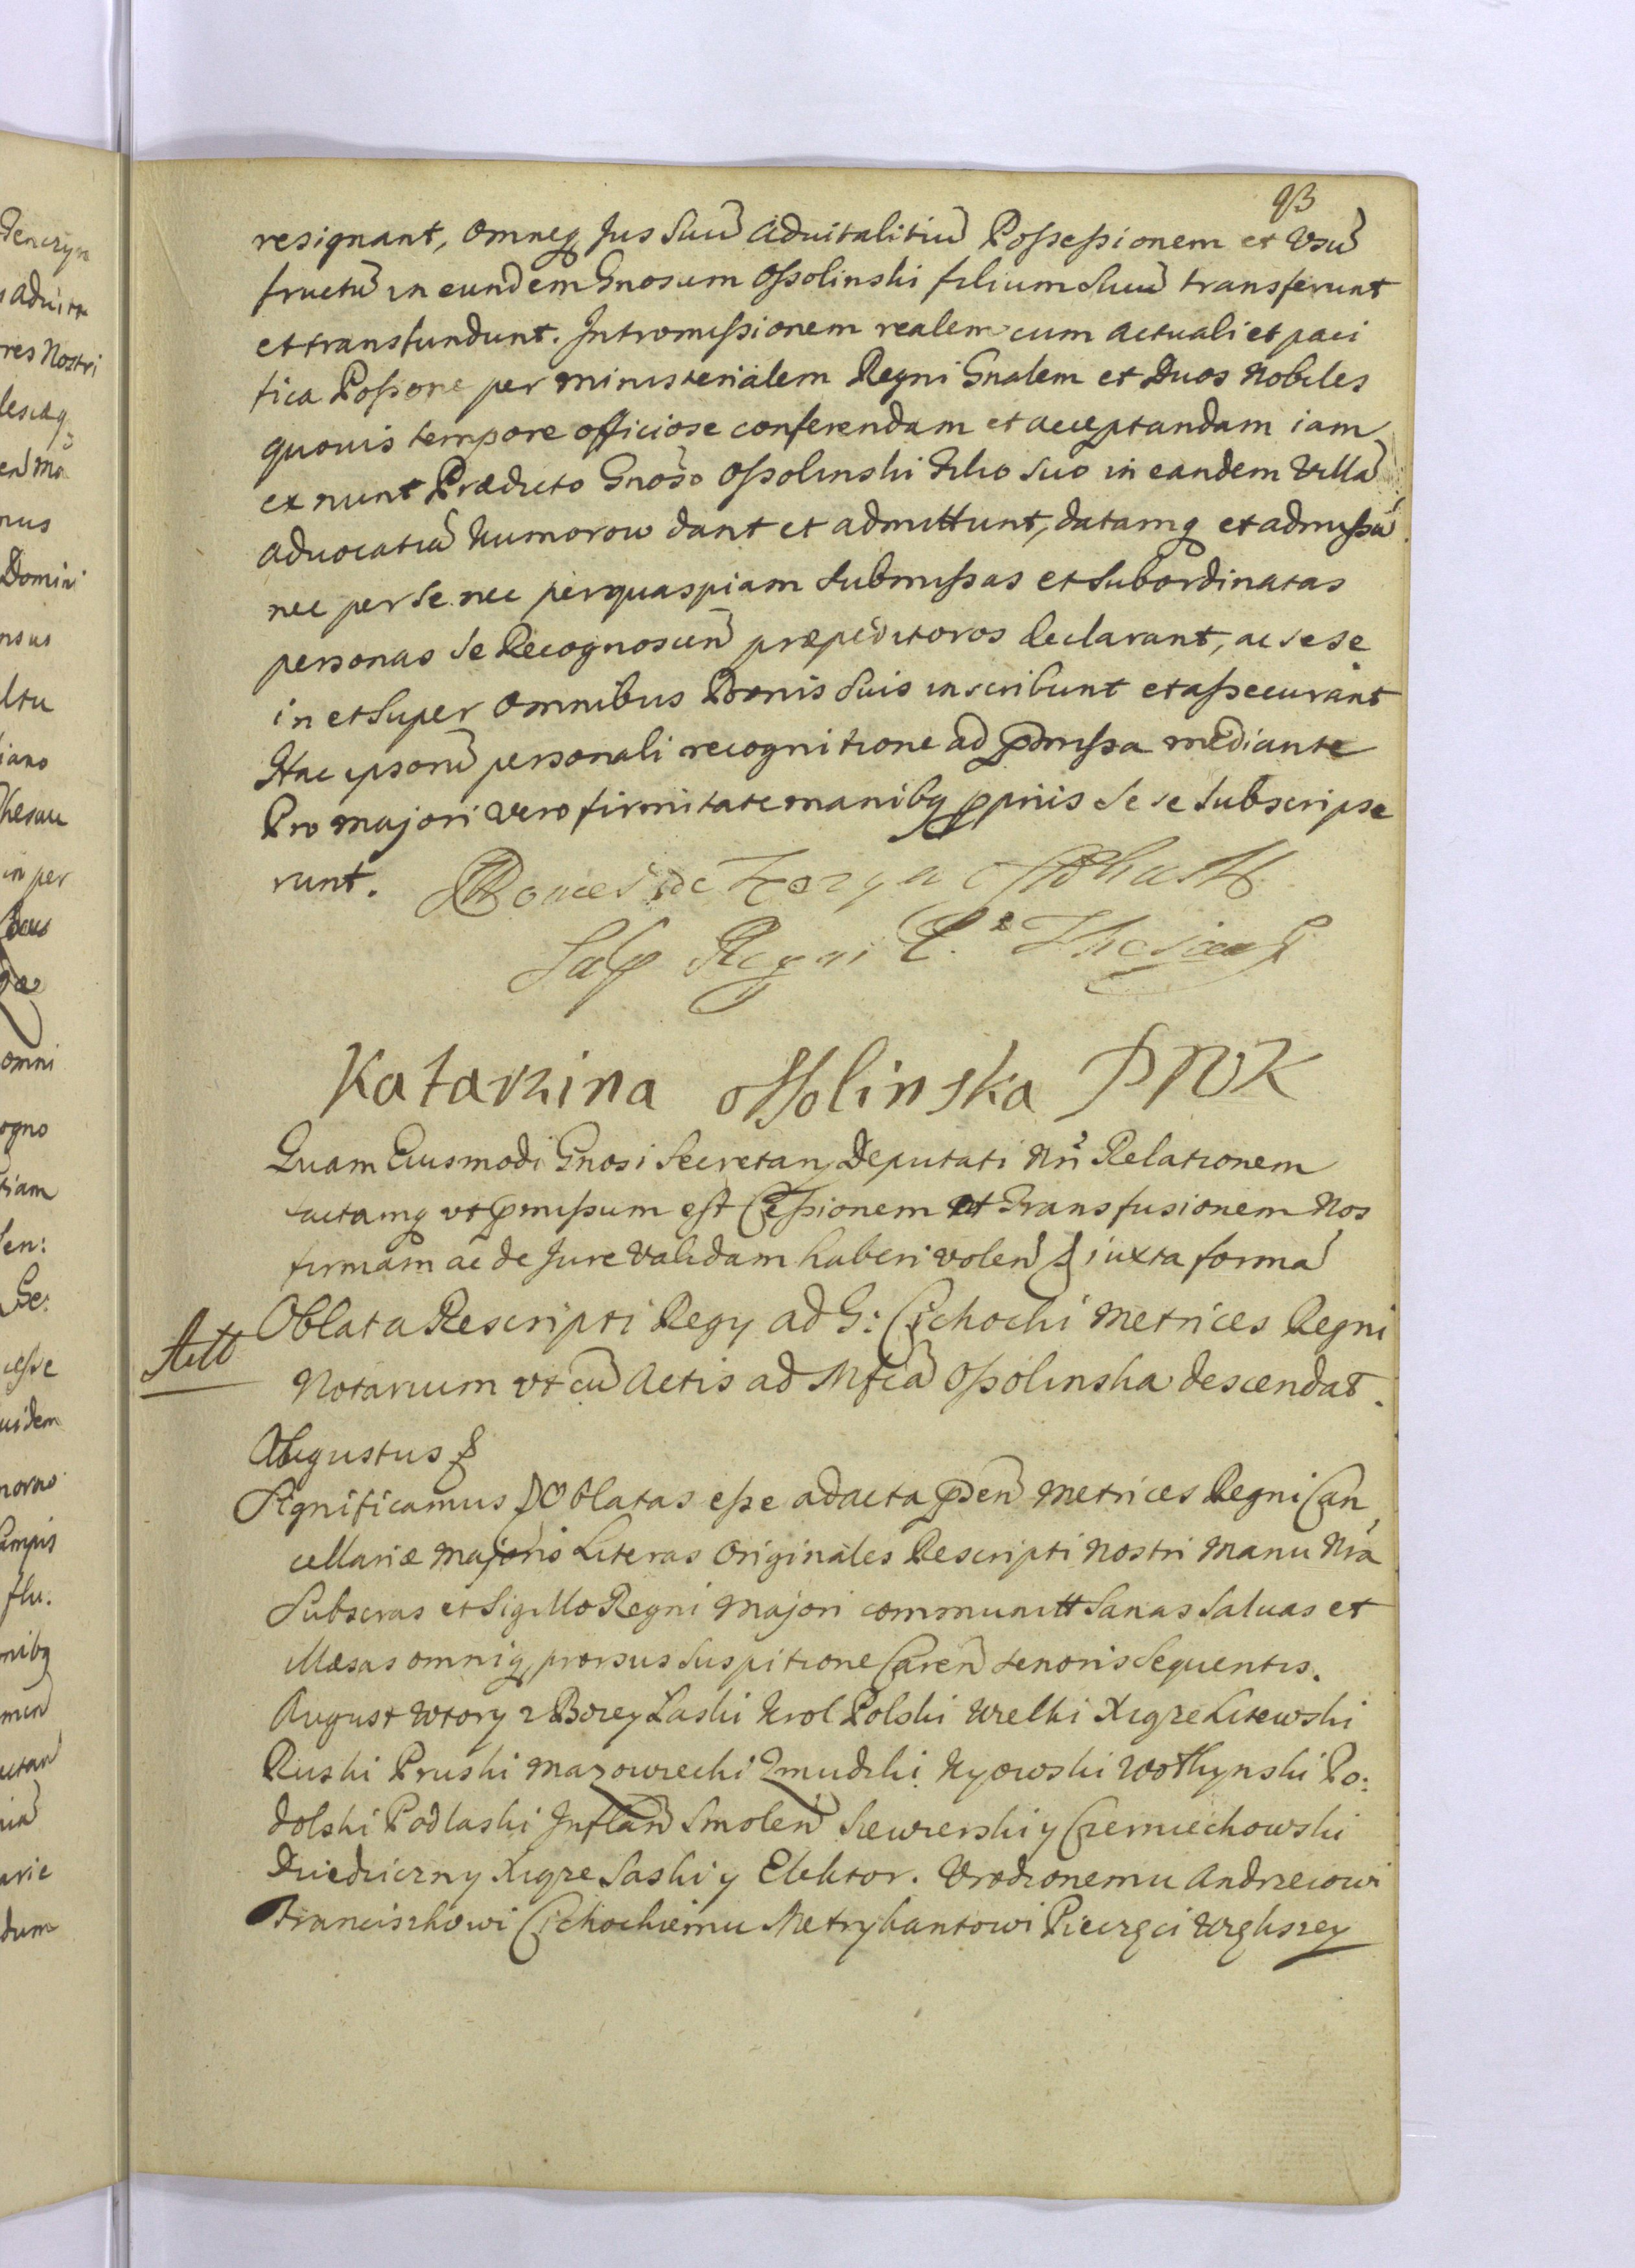 93
resignant, omneq Jus Suũ aduitalitiũ Possessionem et Vsũ
fructũ in eundem Gnosum Ossolinski filium Suũ transferunt
et transfundunt. Intromissionem realem cum actuali et paci
fica Possone per ministerialem Regni Gnalem et Duos Nobiles
quouis tempore officiose conferendam et acceptandam iam
ex nunc Prædicto Gnoso Ossolinski Filio Suo in eandem Villã
aduocatiã Kumorow dant et admittunt, datamq et admissã
nec per se nec per quaspiam Submissas et Subordinatas
personas se Recognoscen̄ præpedituros declarant, ac sese
in et Super omnibus Bonis Suis inscribunt et assecurant
Hac ipsorũ personali recognitione ad præmissa mediante
Pro majori vero firmitate manibq ppriis Sese Subscripse
runt.
Regni
Katarzina Ossolinska PWK
Quam Eiusmodi Gnosi Secretarij Deputati Nri Relationem
factamq vt præmissum est Cessionem et Transfusionem Nos
firmam ac de Jure Validam haberi volen̄ iuxta formã
Oblata Rescripti Regij ad G: Cichocki Metrices Regni
Notarium vt cũ Actis ad Mfcã Ossolinska descendat.
Augustus
Significamus Oblatas esse ad acta præsen̄ Metrices Regni Can
cellariæ Majoris Literas Originales Rescripti Nostri Manu Nrã
Subscras et Sigillo Regni Majori communitt Sanas Saluas et
illæsas omniq prorsus Suspitione Caren̄ tenoris Sequentis.
August Wtory z Bozey Łaski Krol Polski Wielki Xiąze Litewski
Ruski Pruski Mazowiecki Zmudzki Kyowski Wołłynski Po:
dolski Podlaski Inflan̄ Smolen̄ Siewierski y Czerniechowski
Dziedziczny Xiąze Saski y Elektor. Vrodzonemu Andrzeiowi
Franciszkowi Cichockiemu Metrykantowi Pieczęci Większey